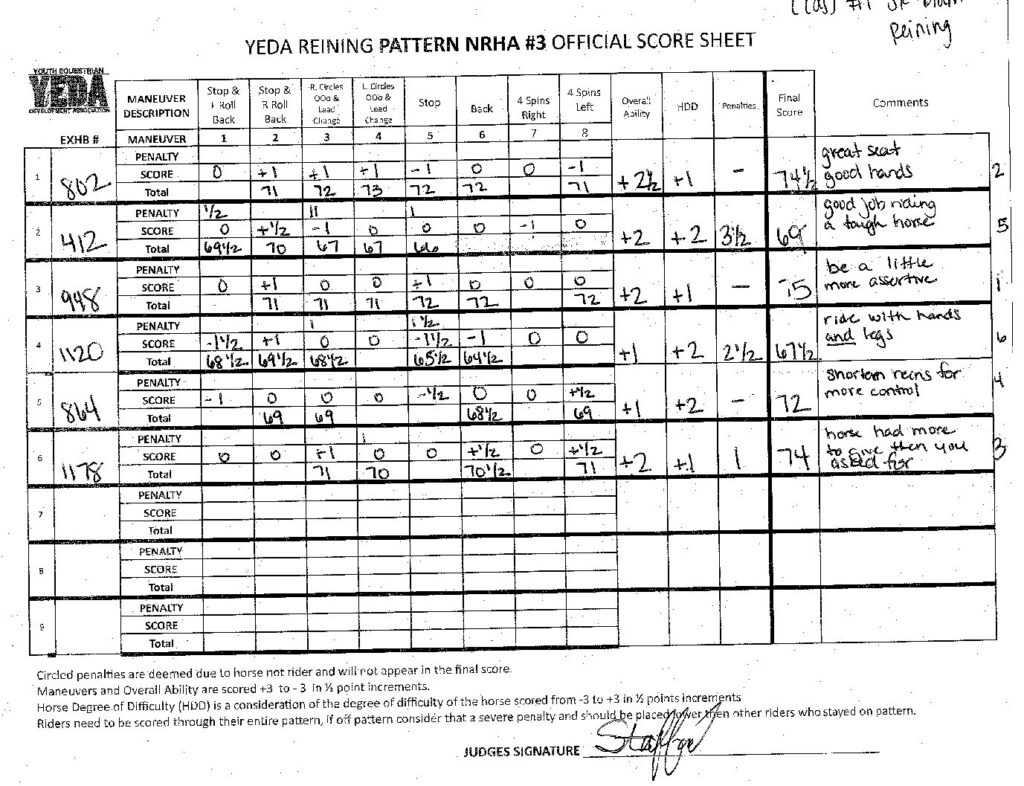 Class #1 Jr
Reining
YEDA REINING PATTERN NRHA #3 OFFICIAL SCORE SHEET
YOUTH EQUESTRIAN
YEDA
DEVELOPMENT ASSOCIATION
EXHB # MANEUVER DESCRIPTION Stop & L Roll Back Stop & R Roll Back R. Circles OOo & Lead Change L. Circles OOo & Lead Change Stop Back 4 Spins Right 4 Spins Left Overall Ability HDD Penalties Final Score Comments
MANEUVER 1 2 3 4 5 6 7 8
1 802 +2½ +1 - 74½ great seat good hands 2
PENALTY
SCORE 0 +1 +1 +1 -1 0 0 -1
Total 71 72 73 72 72 71
2 412 +2 +2 3½ 69 good job riding a tough horse 5
PENALTY ½ 11 1
SCORE 0 +½ -1 0 0 0 -1 0
Total 69½ 70 67 67 66
3 948 +2 +1 - 75 be a little more assertive 1
PENALTY
SCORE 0 +1 0 0 +1 0 0 0
Total 71 71 71 72 72 72
4 1120 +1 +2 2½ 67½ ride with hands and legs 6
PENALTY 1 1½
SCORE -1½ +1 0 0 -1½ -1 0 0
Total 68½ 69½ 68½ 65½ 64½
5 864 +1 +2 - 72 Shorten reins for more control 4
PENALTY
SCORE -1 0 0 0 -½ 0 0 +½
Total 69 69 68½ 69
6 1178 +2 +1 1 74 horse had more to give then you asked for 3
PENALTY 1
SCORE 0 0 +1 0 0 +½ 0 +½
Total 71 70 70½ 71
7
PENALTY
SCORE
Total
8
PENALTY
SCORE
Total
9
PENALTY
SCORE
Total
Circled penalties are deemed due to horse not rider and will not appear in the final score.
Maneuvers and Overall Ability are scored +3 to -3 in ½ point increments.
Horse Degree of Difficulty (HDD) is a consideration of the degree of difficulty of the horse scored from -3 to +3 in ½ points increments
Riders need to be scored through their entire pattern, if off pattern consider that a severe penalty and should be placed lower then other riders who stayed on pattern.
JUDGES SIGNATURE